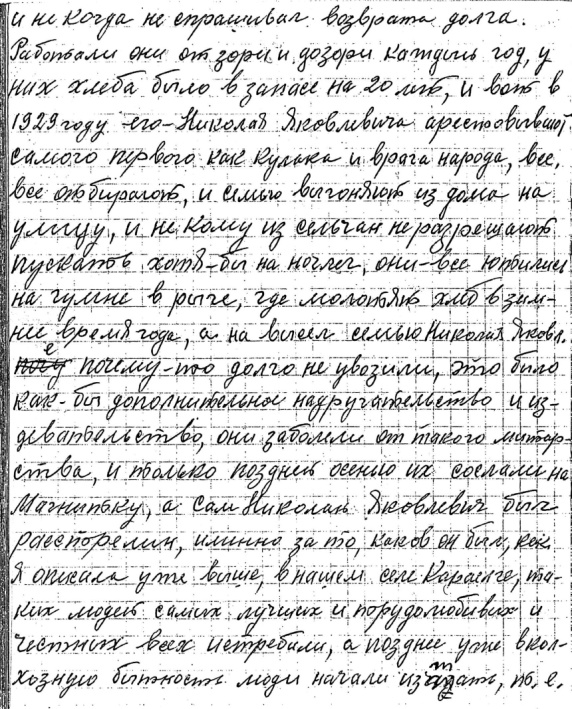 и не когда не спрашивал возврата долга.
Работали они от зори и дозори каждый год, у
них хлеба было в запасе на 20 лет, и вот в
1929 году его - Николая Яковлевича арестовывают
самого первого как кулака и врага народа, все,
все отбирают, и семью выгоняют из дома на
улицу, и не кому из сельчан не разрешают
пускать хотя-бы на ночлег, они-все ютились
на гумне в рыге, где молотят хлеб в зим-
нее время года, а на высел семью Николая Яковл.
почему-то долго не увозили, это было
как-бы дополнительное надругательство и из-
девательство, они заболели от такого мытар-
ства, и только поздней осенью их сослали на
Магнитку, а сам Николай Яковлевич был
расстрелян, именно за то, каков он был, как
я описала уже выше, в нашем селе Караелге, та-
ких людей самых лучших и трудолюбивых и
честных всех истребили, а позднее уже в кол-
хозную бытность люди начали т. е.